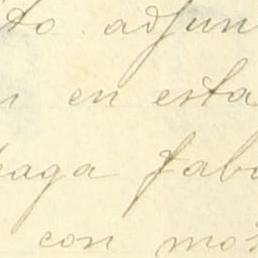 to adjun
n en esta
eaga fab
con mo